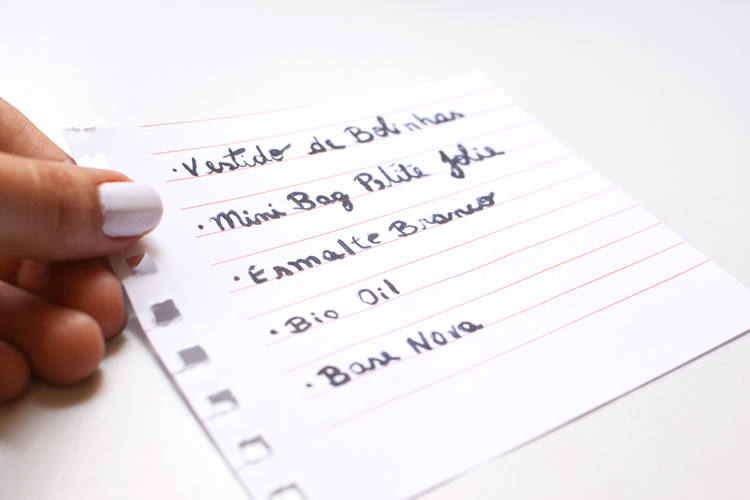 · Vestido de Bolinhas
· Mini Bag Petite Jolie
· Esmalte Branco
· Bio Oil
· Base Nova